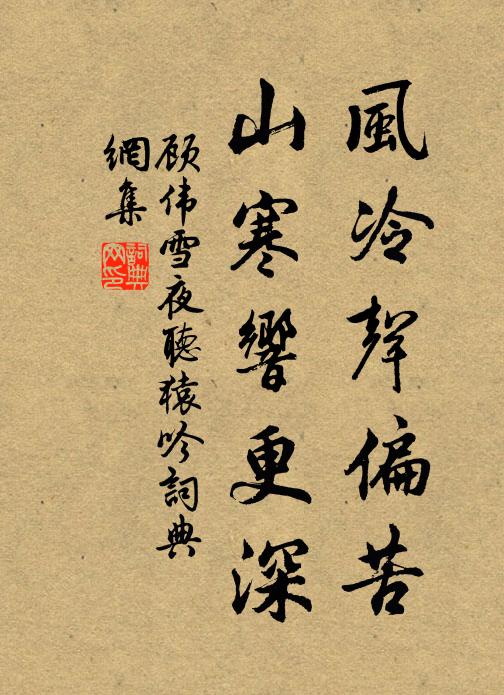 風冷聲偏苦
山寒響更深
顾伟雪夜聽猿吟詞典
網集
詞典
网印